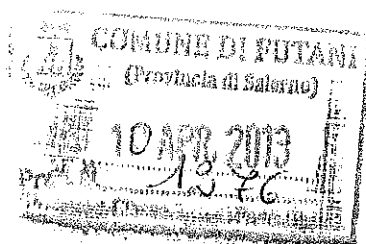 COMUNE DI FUTANI
(Provincia di Salerno)
10 APR. 2013
Prot. N. 1276